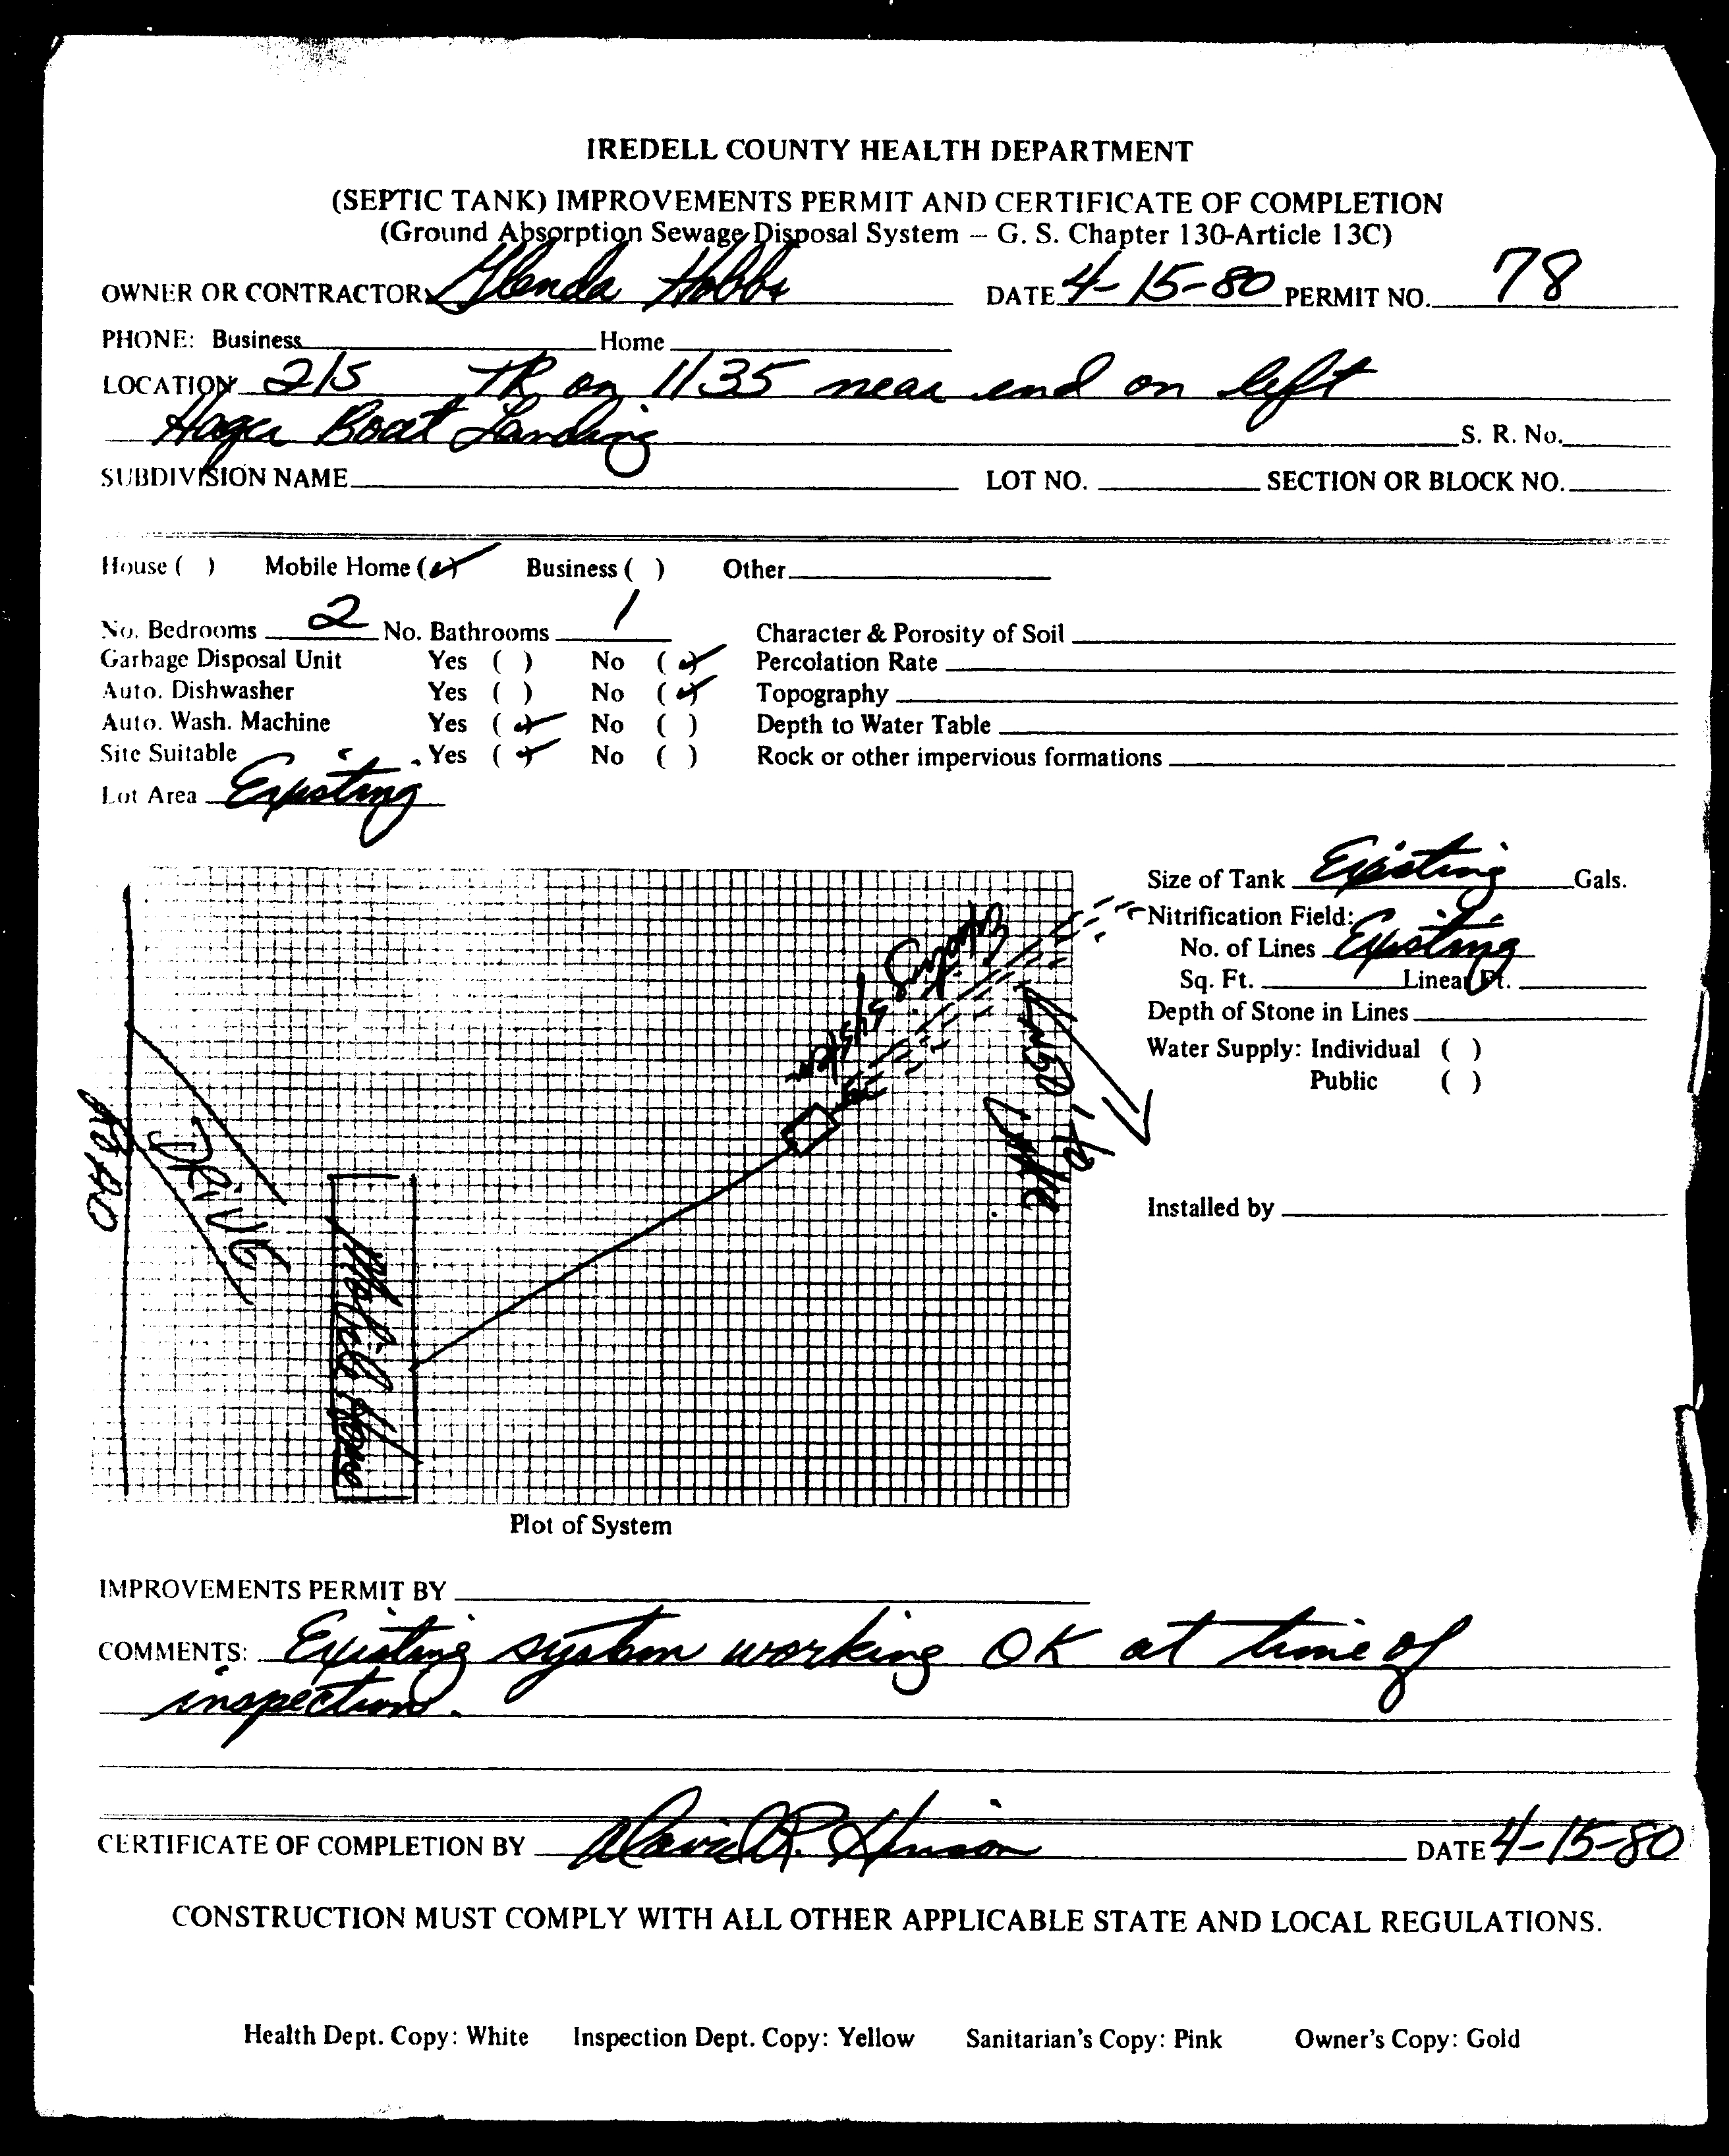 IREDELL COUNTY HEALTH DEPARTMENT
(SEPTIC TANK) IMPROVEMENTS PERMIT AND CERTIFICATE OF COMPLETION
(Ground Absorption Sewage Disposal System – G. S. Chapter 130-Article 13C)
OWNER OR CONTRACTOR Glenda Hobbs DATE 4-15-80 PERMIT NO. 78
PHONE: Business Home
LOCATION 21S TR on 1135 near end on left
Hager Boat Landing S. R. No.
SUBDIVISION NAME LOT NO. SECTION OR BLOCK NO.
House ( ) Mobile Home (✓) Business ( ) Other
No. Bedrooms 2 No. Bathrooms 1 Character & Porosity of Soil
Garbage Disposal Unit Yes ( ) No (✓) Percolation Rate
Auto. Dishwasher Yes ( ) No (✓) Topography
Auto. Wash. Machine Yes (✓) No ( ) Depth to Water Table
Site Suitable Yes (✓) No ( ) Rock or other impervious formations
Lot Area Existing
Size of Tank Existing Gals.
Nitrification Field:
No. of Lines Existing
Sq. Ft. Linear Ft.
Depth of Stone in Lines
Water Supply: Individual ( )
Public ( )
Installed by
ROAD
DRIVE
Mobile Home
Existing System
100 ft. to Lake
Plot of System
IMPROVEMENTS PERMIT BY
COMMENTS: Existing system working OK at time of
inspection.
CERTIFICATE OF COMPLETION BY David R. Hinson DATE 4-15-80
CONSTRUCTION MUST COMPLY WITH ALL OTHER APPLICABLE STATE AND LOCAL REGULATIONS.
Health Dept. Copy: White Inspection Dept. Copy: Yellow Sanitarian's Copy: Pink Owner's Copy: Gold